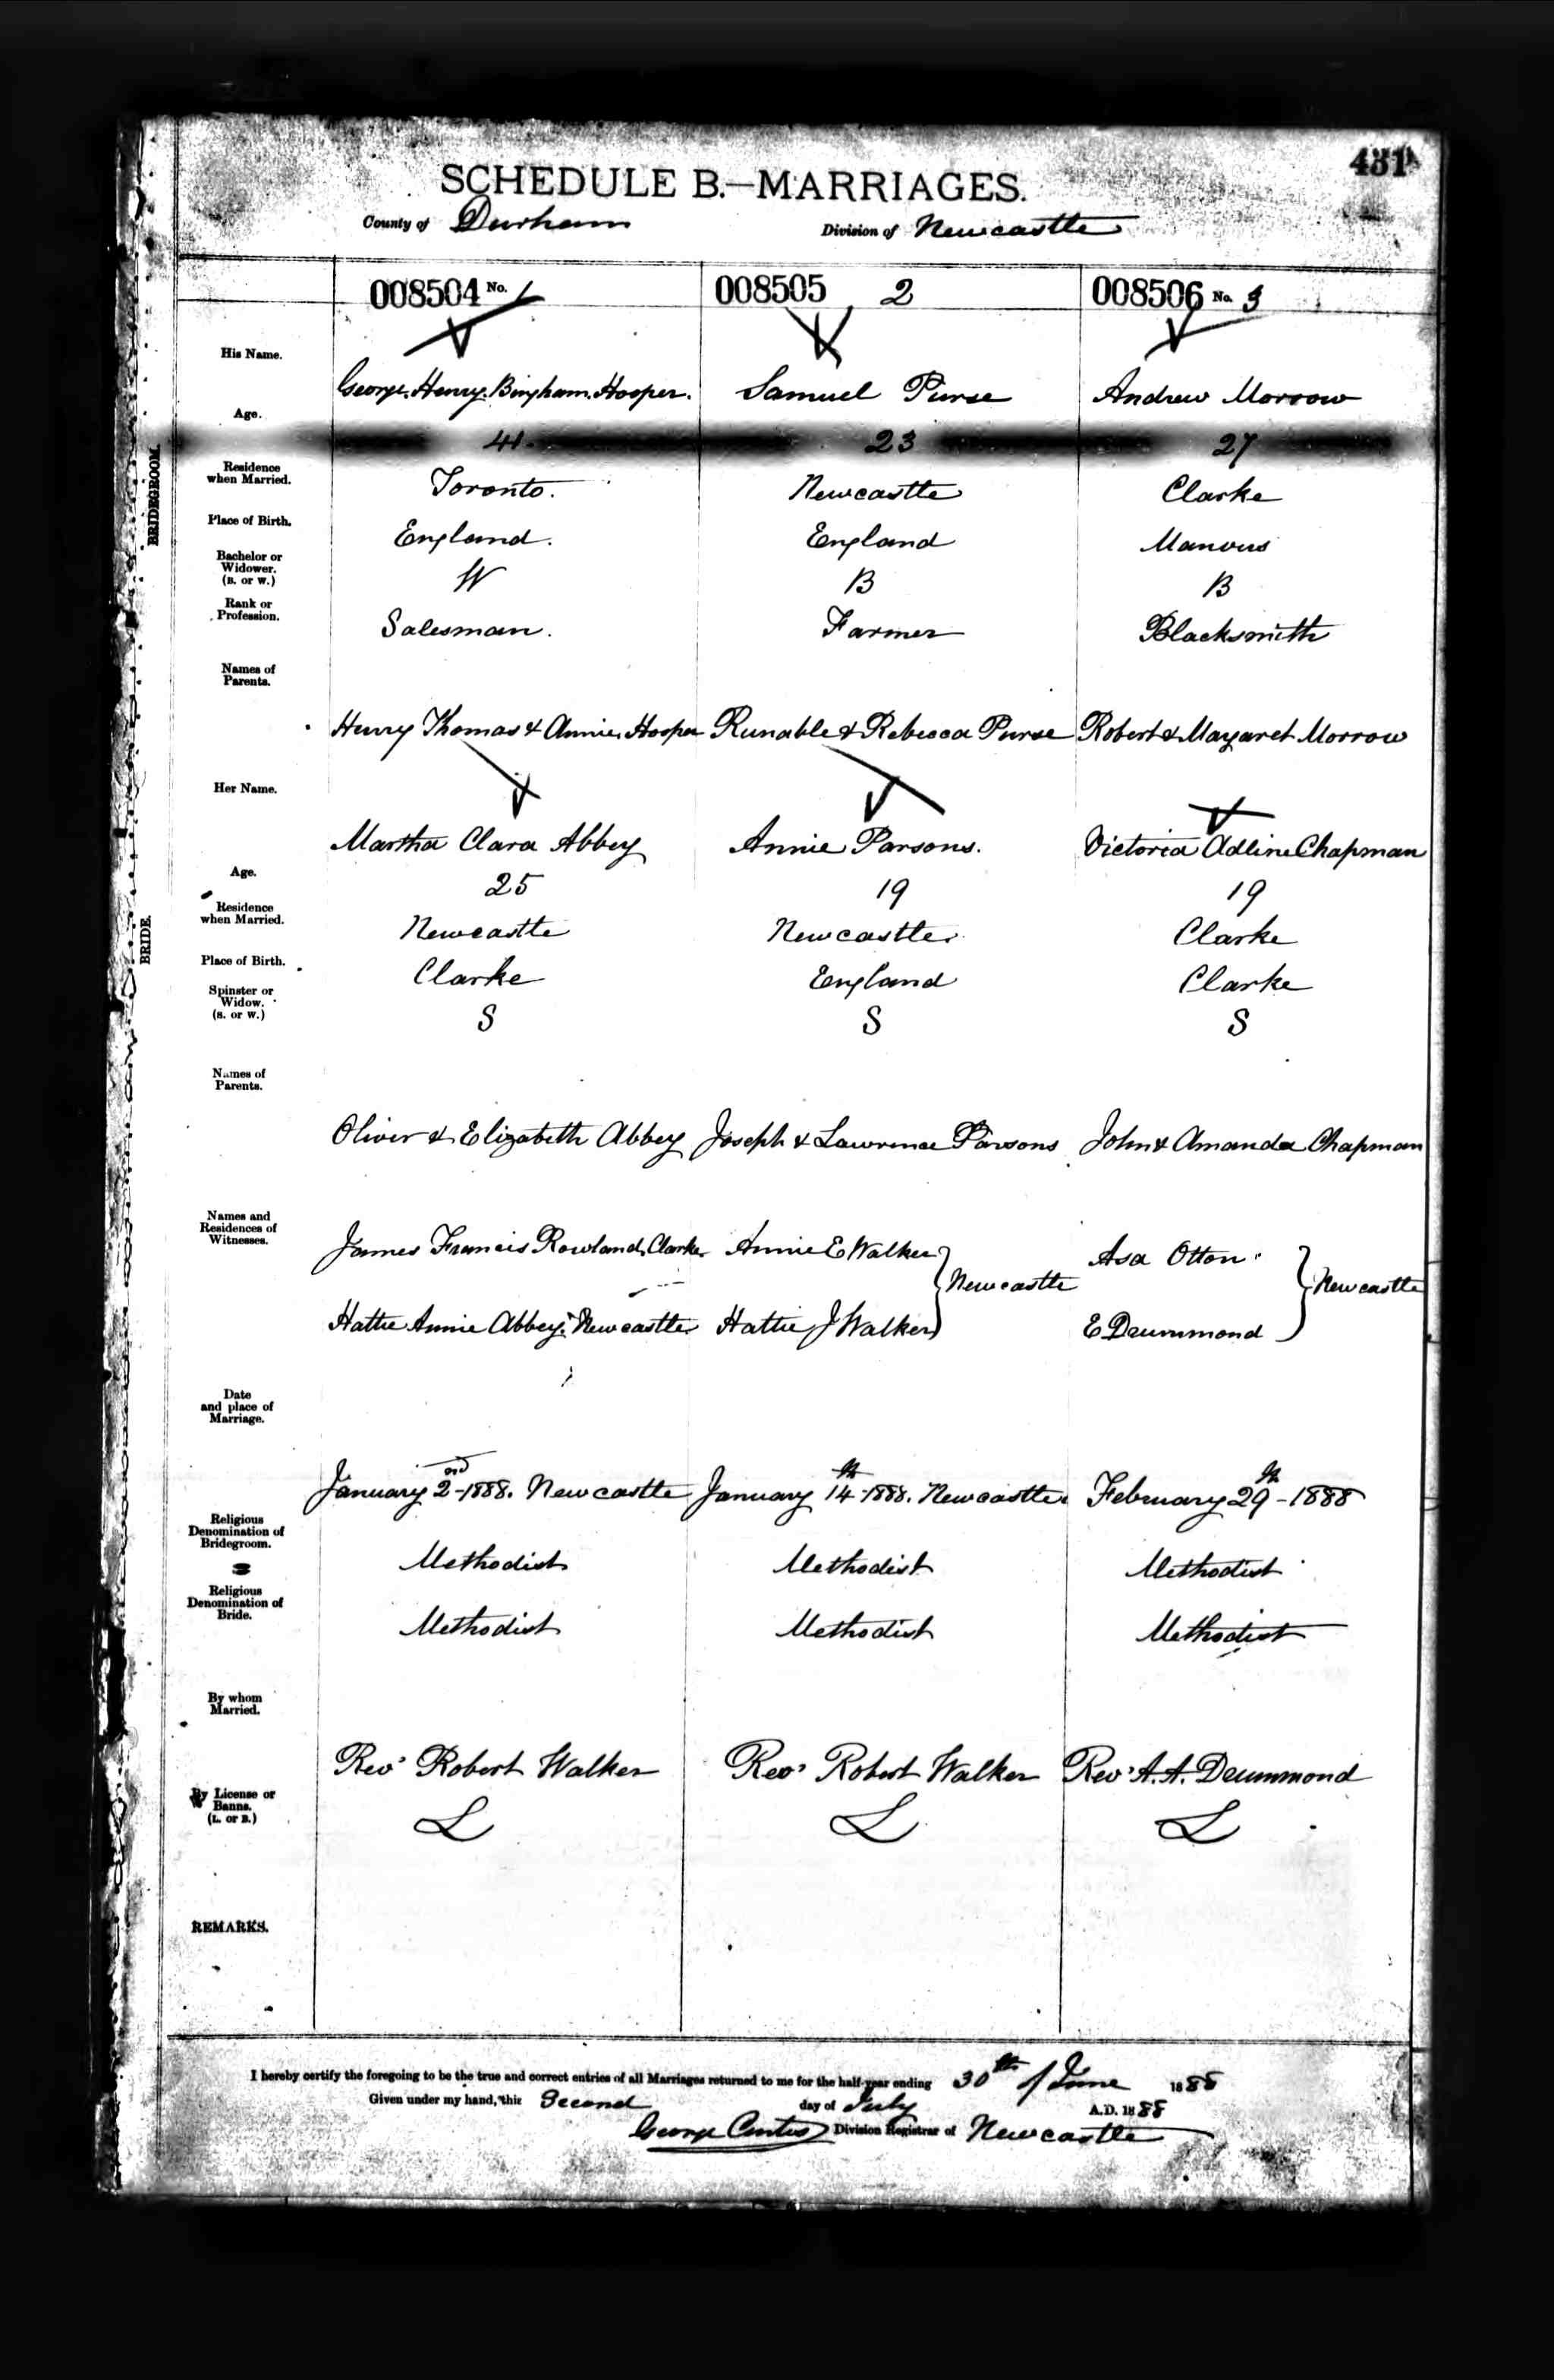 431
SCHEDULE B.—MARRIAGES.
County of Durham Division of Newcastle
008504 No. 1 008505 2 008506 No. 3
BRIDEGROOM.
His Name. George Henry Bingham Hooper. Samuel Purse Andrew Morrow
Age. 41. 23 27
Residence when Married. Toronto. Newcastle Clarke
Place of Birth. England. England Manvers
Bachelor or Widower. (B. or W.) W B B
Rank or Profession. Salesman. Farmer Blacksmith
Names of Parents. Henry Thomas & Annie Hooper Runable & Rebecca Purse Robert & Margaret Morrow
BRIDE.
Her Name. Martha Clara Abbey Annie Parsons. Victoria Adline Chapman
Age. 25 19 19
Residence when Married. Newcastle Newcastle Clarke
Place of Birth. Clarke England Clarke
Spinster or Widow. (S. or W.) S S S
Names of Parents. Oliver & Elizabeth Abbey Joseph & Lawrence Parsons John & Amanda Chapman
Names and Residences of Witnesses. James Francis Rowland, Clarke Annie E Walker Asa Otton
Newcastle Newcastle
Hattie Annie Abbey, Newcastle Hattie J Walker E Drummond
Date and place of Marriage. January 2nd-1888. Newcastle January 14th-1888. Newcastle February 29th-1888
Religious Denomination of Bridegroom. Methodist Methodist Methodist
Religious Denomination of Bride. Methodist Methodist Methodist
By whom Married. Rev'd Robert Walker Rev'd Robert Walker Rev'd A. A. Drummond
By License or Banns. (L. or B.) L L L
REMARKS.
I hereby certify the foregoing to be the true and correct entries of all Marriages returned to me for the half-year ending 30th of June 1888
Given under my hand, this Second day of July A.D. 1888
George Curtis Division Registrar of Newcastle